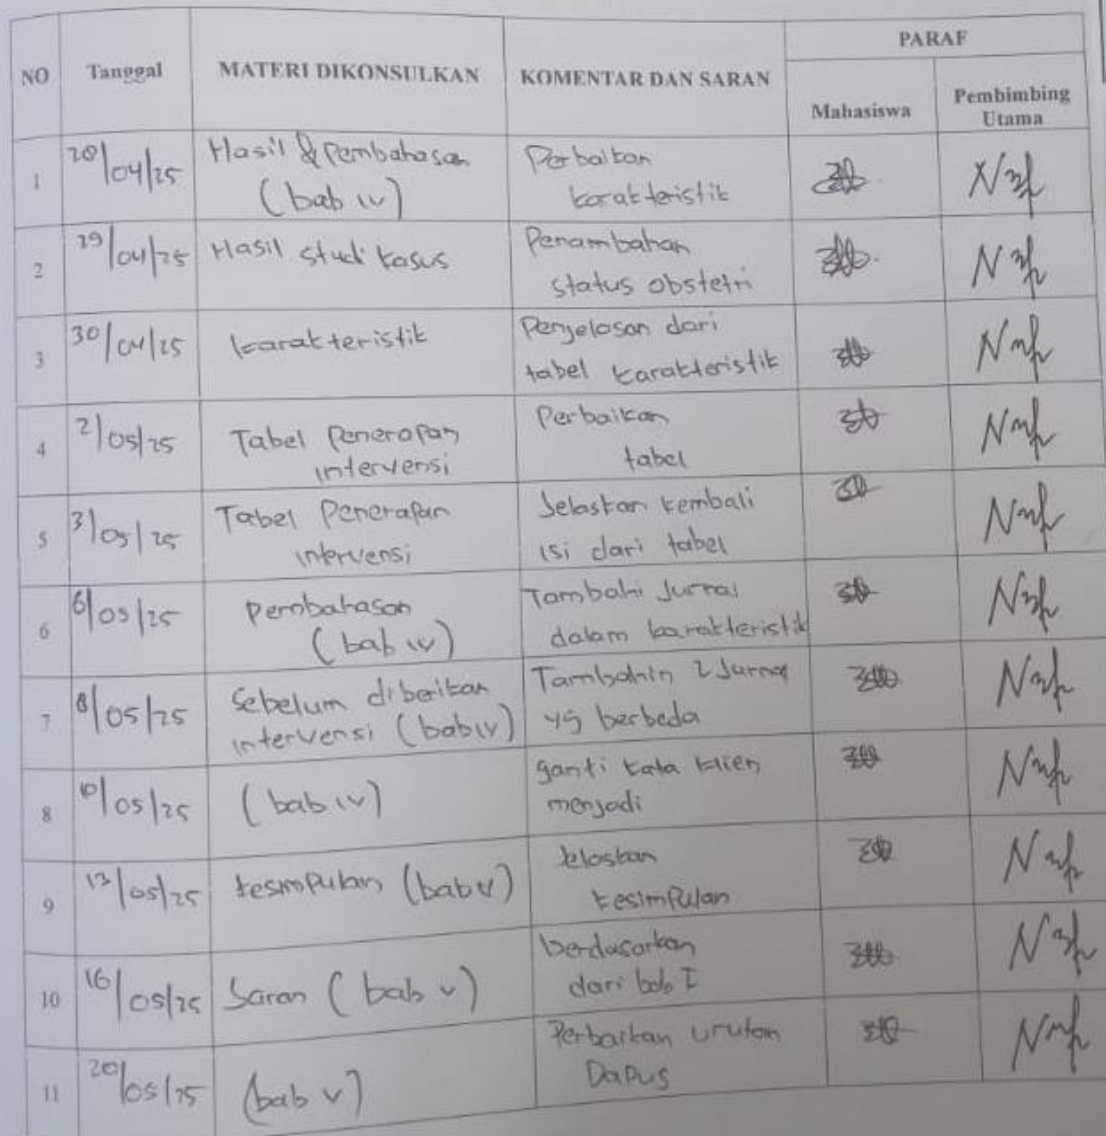 NO Tanggal MATERI DIKONSULKAN KOMENTAR DAN SARAN PARAF
Mahasiswa Pembimbing
Utama
1 28/04/25 Hasil & Pembahasan Perbaikan
(bab IV) karakteristik
2 29/04/25 Hasil studi kasus Penambahan
status obstetri
3 30/04/25 karakteristik Penjelasan dari
tabel karakteristik
4 2/05/25 Tabel Penerapan Perbaikan
intervensi tabel
5 3/05/25 Tabel Penerapan Jelaskan kembali
intervensi isi dari tabel
6 6/05/25 Pembahasan Tambahi Jurnal
(bab iv) dalam karakteristik
7 8/05/25 Sebelum diberikan Tambahin 2 Jurnal
intervensi (bab iv) yg berbeda
8 10/05/25 (bab iv) ganti kata klien
menjadi
9 13/05/25 kesimpulan (bab v) Jelaskan
kesimpulan
10 16/05/25 Saran (bab v) berdasarkan
dari bab I
11 20/05/25 (bab v) Perbaikan urutan
Dapus